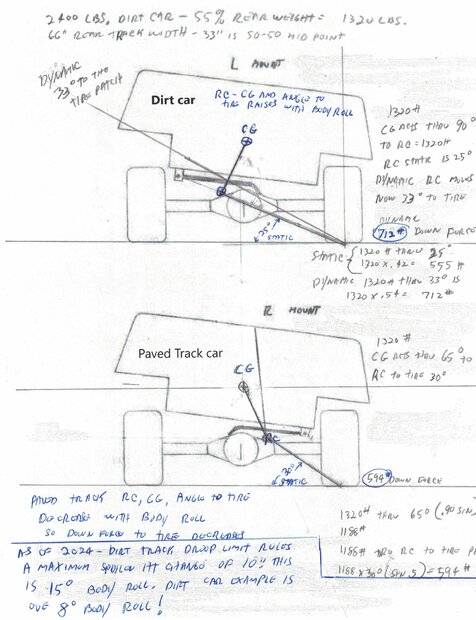 2400 LBS, DIRT CAR - 55% REAR WEIGHT = 1320 LBS.
66" REAR TRACK WIDTH - 33" IS 50-50 MID POINT
L MOUNT
DYNAMIC
33° TO THE
TIRE PATCH
Dirt car
RC - CG AND ANGLE TO
TIRE RAISES WITH BODY ROLL
CG
25°
STATIC
1320#
CG ACTS THRU 90°
TO RC = 1320#
RC STATIC IS 25°
DYNAMIC RC MOVES
NOW 33° TO TIRE
DYNAMIC
712# DOWN FORCE
STATIC
1320# THRU 25°
1320 X .42 = 555#
DYNAMIC 1320# THRU 33° IS
1320 X .54 = 712#
R MOUNT
Paved Track car
CG
RC
30°
STATIC
1320#
CG ACTS THRU 65° TO
RC TO TIRE 30°
594# DOWN FORCE
PAVED TRACK RC, CG, ANGLE TO TIRE
DECREASES WITH BODY ROLL
SO DOWN FORCE TO TIRE DECREASES
1320# THRU 65° (.90 SIN
1188#
1188# THRU RC TO TIRE
1188 X 30° (SIN .5) = 594#
AS OF 2024 - DIRT TRACK DROOP LIMIT RULES
A MAXIMUM SPOILER HT CHANGE OF 10". THIS
IS 15° BODY ROLL. DIRT CAR EXAMPLE IS
OVE 8° BODY ROLL!